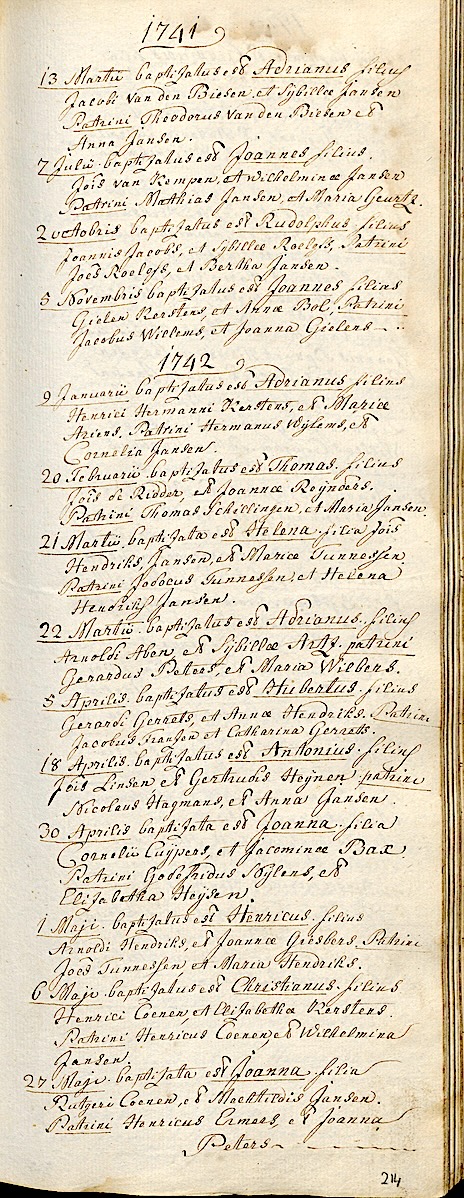 1741
13 Martii baptisatus est Adrianus filius
Jacobi van den Biesen, et Sybillæ Jansen
Patrini Theodorus van den Biesen et
Anna Jansen.
7 Julii baptisatus est Joannes filius.
Jois van Kempen, et Wilhelminæ Jansen
Patrini Mathias Jansen, et Maria Geurtz.
2 octobris baptisatus est Rudolphus filius
Joannis Jacobs, et Sybillæ Roelofs, Patrini
Joes Roelofs, et Bertha Jansen.
5 Novembris baptisatus est Joannes filius
Gielen Kerstens, et Annæ Bol, Patrini
Jacobus Willems, et Joanna Gielens
1742
9 Januarii baptisatus est Adrianus filius
Henrici Hermanni Kerstens, et Mariæ
Ariens, Patrini Hermanus Wylems, et
Cornelia Jansen.
20 Februarii baptisatus est Thomas filius
Jois de Ridder, et Joannæ Reynders.
Patrini Thomas Schellingen, et Maria Jansen.
21 Martii baptisata est Helena filia Jois
Hendriks Jansen, et Mariæ Tunnessen
Patrini Jodocus Tunnessen, et Helena
Hendriks Jansen.
22 Martii baptisatus est Adrianus filius
Arnoldi Aben, et Sybillæ Artz. patrini
Gerardus Peters, et Maria Wilbers.
5 Aprilis baptisatus est Hubertus filius
Gerardi Gerrets, et Annæ Hendriks. Patrini
Jacobus Fransen et Catharina Gerrets.
18 Aprilis baptisatus est Antonius filius
Jois Linsen et Gertrudis Heynen. patrini
Nicolaus Hagmans, et Anna Jansen.
30 Aprilis baptisata est Joanna filia
Cornelii Cuypers, et Jacominæ Bax.
Patrini Godefridus Nylens, et
Elizabetha Heysen.
1 Maji baptisatus est Henricus filius
Arnoldi Hendriks, et Joannæ Giesbers. Patrini
Joes Tunnessen et Maria Hendriks.
6 Maji baptisatus est Christianus filius
Henrici Coenen et Elizabetha Kerstens
Patrini Henricus Coenen, et Wilhelmina
Jansen.
27 Maji baptisata est Joanna filia
Rutgeri Coenen, et Mechtildis Jansen.
Patrini Henricus Ermers, et Joanna
Peters
214